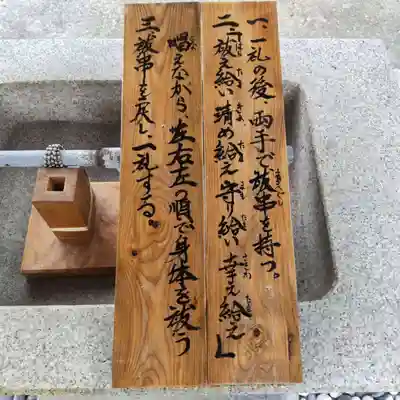 一、一礼の後、両手で祓串を持つ。
二、「祓え給い 清め給え 守り給い 幸え給え」
唱えながら、左右左順で身体を祓う
三、祓串を戻し、一礼する。